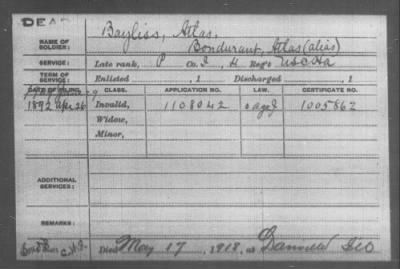 DEAD
NAME OF SOLDIER: Bayliss, Atlas.
Bondurant, Atlas (alias)
SERVICE: Late rank, P Co. I, 4 Reg't USCHA
TERM OF SERVICE: Enlisted , 1 Discharged , 1
DATE OF FILING. CLASS. APPLICATION NO. LAW. CERTIFICATE NO.
1892 Apr 26 Invalid, 1108042 1005862
Widow,
Minor,
ADDITIONAL SERVICES:
Died May 17, 1918, at